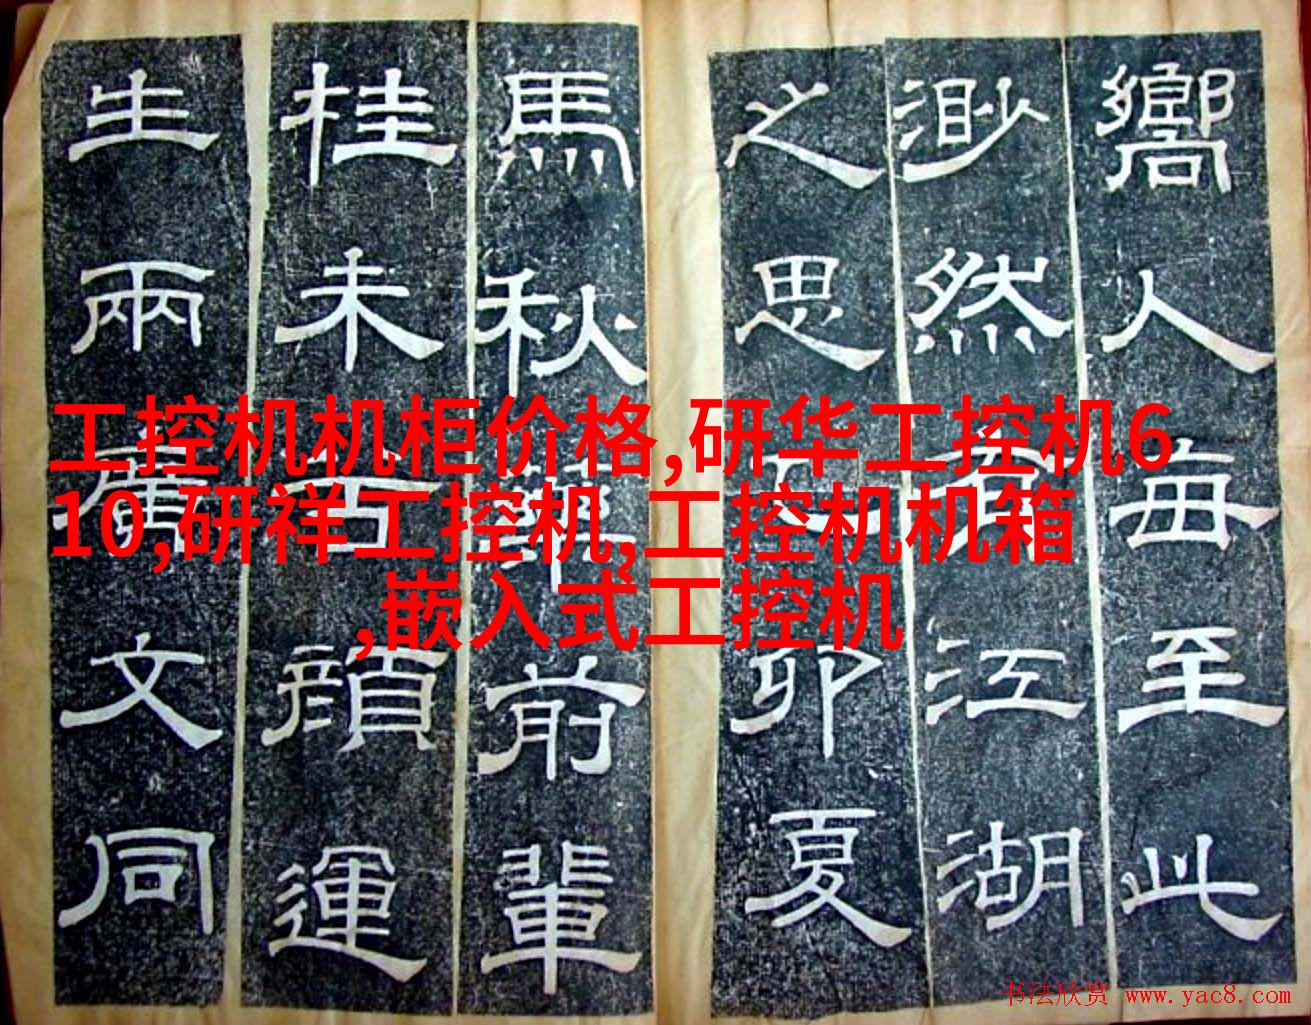 嚮人每至此
渺然有江湖
之思卯夏
馬秋藥前輩
桂未谷顏運
生兩廣文同
工控机机柜价格,研华工控机6
10,研祥工控机,工控机机箱
,嵌入式工控机
书法欣赏 www.yac8.com